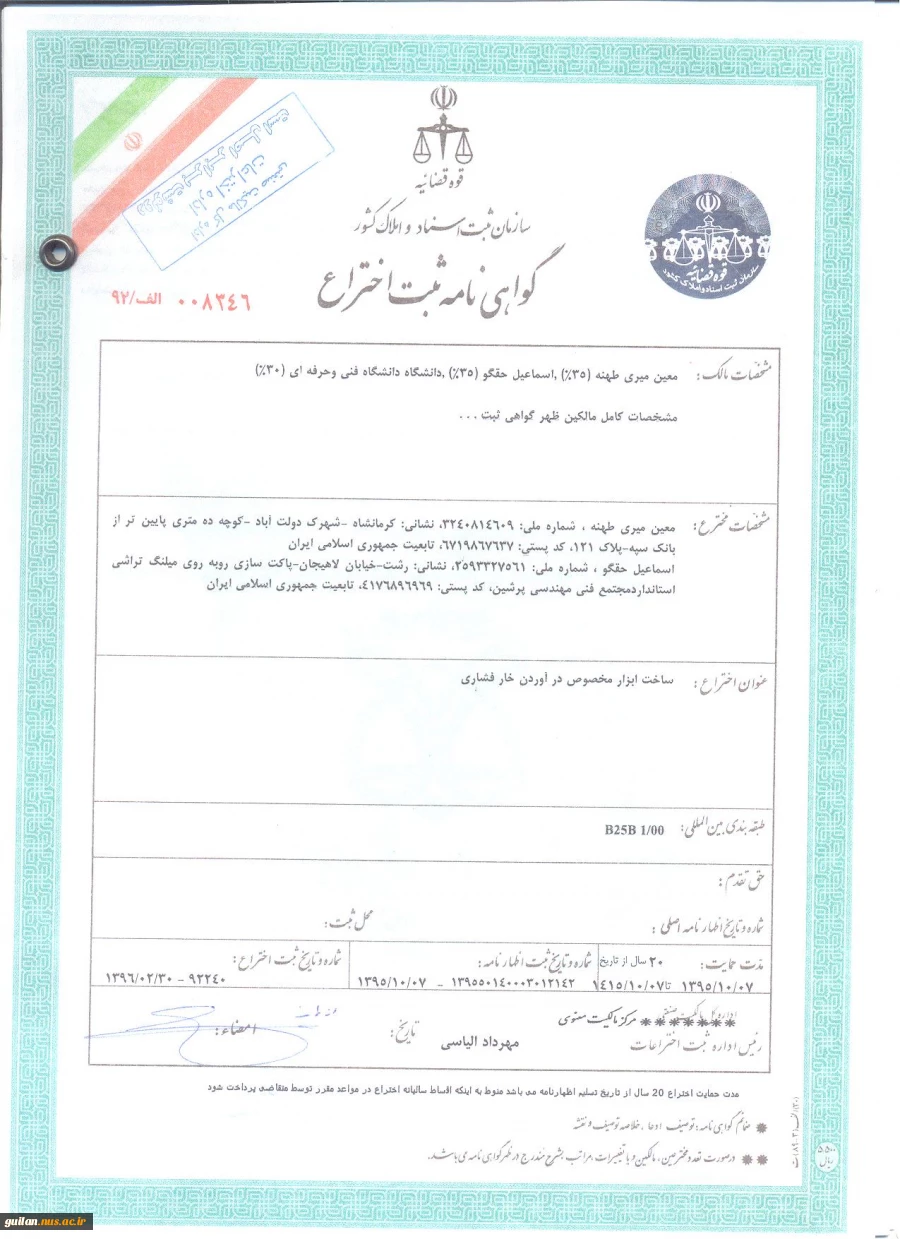 قوه قضائیه
سازمان ثبت اسناد و املاک کشور
گواهی نامه ثبت اختراع
قوه قضائیه
سازمان ثبت اسناد و املاک کشور
اداره کل مالکیت صنعتی
اداره اختراعات
۰۰۸۳۴۶ الف/۹۲
مشخصات مالک: معین میری طهنه (۳۵٪) ,اسماعیل حقگو (۳۵٪) ,دانشگاه دانشگاه فنی وحرفه ای (۳۰٪)
مشخصات کامل مالکین ظهر گواهی ثبت ...
مشخصات مخترع: معین میری طهنه ، شماره ملی: ۳۲۴۰۸۱۴۶۰۹، نشانی: کرمانشاه -شهرک دولت آباد -کوچه ده متری پایین تر از
بانک سپه-پلاک ۱۲۱، کد پستی: ۶۷۱۹۸۶۷۶۳۷، تابعیت جمهوری اسلامی ایران
اسماعیل حقگو ، شماره ملی: ۲۵۹۳۳۲۷۵۶۱، نشانی: رشت-خیابان لاهیجان-پاکت سازی روبه روی میلنگ تراشی
استانداردمجتمع فنی مهندسی پرشین، کد پستی: ۴۱۷۶۸۹۶۹۶۹، تابعیت جمهوری اسلامی ایران
عنوان اختراع: ساخت ابزار مخصوص در آوردن خار فشاری
طبقه بندی بین المللی: B25B 1/00
حق تقدم:
شماره و تاریخ اظهارنامه اصلی: محل ثبت:
مدت حمایت: ۲۰ سال از تاریخ شماره و تاریخ ثبت اظهارنامه: شماره و تاریخ ثبت اختراع:
۱۳۹۵/۱۰/۰۷ تا ۱۴۱۵/۱۰/۰۷ ۱۳۹۵۵۰۱۴۰۰۰۳۰۱۲۱۴۲ - ۱۳۹۵/۱۰/۰۷ ۹۲۲۴۰ - ۱۳۹۶/۰۲/۳۰
اداره کل مالکیت صنعتی ******* مرکز مالکیت معنوی
رئیس اداره ثبت اختراعات مهرداد الیاسی تاریخ: امضاء:
مدت حمایت اختراع 20 سال از تاریخ تسلیم اظهارنامه می باشد منوط به اینکه اقساط سالیانه اختراع در مواعد مقرر توسط متقاضی پرداخت شود
* ضمائم گواهی نامه: توصیف، ادعا، خلاصه توصیف و نقشه
** درصورت تعدد مخترعین، مالکین و یا تغییرات، مراتب بشرح مندرج در ظهر گواهی نامه می باشد.
۵۵۰۰ ریال
guilan.nus.ac.ir